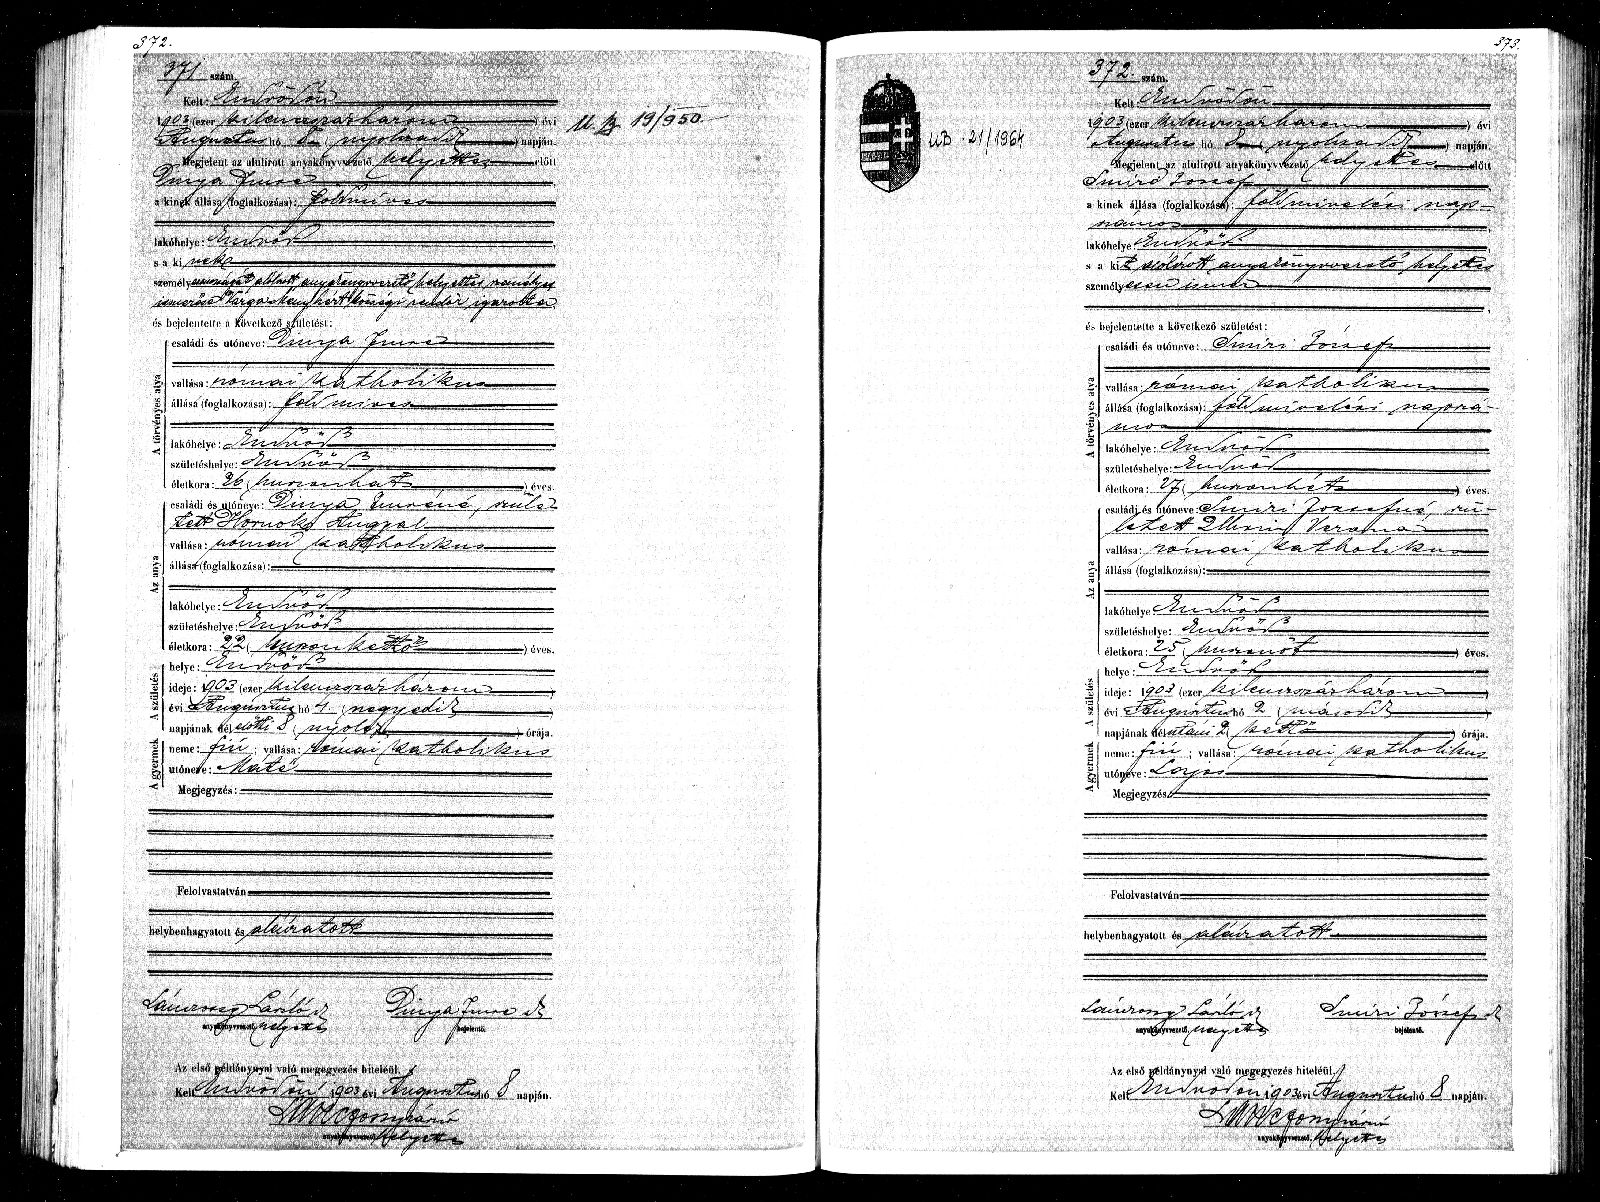 372.
371 szám.
Kelt: Endrődön
1903 (ezer kilenczszázhárom) évi
Augustus hó 8 (nyolczadik) napján.
Megjelent az alulirott anyakönyvvezető helyettes előtt
Dinya Imre
a kinek állása (foglalkozása): földmives
lakóhelye: Endrőd
s a ki
személyazonosságát alólirott anyakönyvvezető helyettes személyes
ismerőse Varga Menyhért községi rendőr igazolta
és bejelentette a következő születést:
A törvényes atya
családi és utóneve: Dinya Imre
vallása: római katholikus
állása (foglalkozása): földmives
lakóhelye: Endrőd
születéshelye: Endrőd
életkora: 26 (huszonhat) éves.
Az anya
családi és utóneve: Dinya Imréné, szüle-
tett Hornok Angyal
vallása: római katholikus
állása (foglalkozása):
lakóhelye: Endrőd
születéshelye: Endrőd
életkora: 22 (huszonkettő) éves.
A születés
helye: Endrőd
ideje: 1903 (ezer kilenczszázhárom)
évi Augustus hó 4 (negyedik)
napjának dél előtti 8 (nyolcz) órája.
A gyermek
neme: fiú; vallása: római katholikus
utóneve: Máté
Megjegyzés:
Felolvastatván
helybenhagyatott és aláiratott
László
anyakönyvvezető helyettes
Dinya Imre
bejelentő.
Az első példánynyal való megegyezés hiteléül.
Kelt Endrődön 1903 évi Augustus hó 8 napján.
anyakönyvvezető, helyettes
19/950
373.
UB. 21/1964
372. szám.
Kelt Endrődön
1903 (ezer kilenczszázhárom) évi
Augustus hó 8 (nyolczadik) napján.
Megjelent az alulirott anyakönyvvezető helyettes előtt
Szmiri József
a kinek állása (foglalkozása): földmivelési nap-
számos
lakóhelye Endrőd
s a kit alólirott anyakönyvvezető helyettes
személyesen ismer
és bejelentette a következő születést:
A törvényes atya
családi és utóneve: Szmiri József
vallása: római katholikus
állása (foglalkozása): földmivelési napszá-
mos
lakóhelye: Endrőd
születéshelye: Endrőd
életkora: 27 (huszonhét) éves.
Az anya
családi és utóneve: Szmiri Józsefné, szü-
letett Veronа
vallása: római katholikus
állása (foglalkozása):
lakóhelye Endrőd
születéshelye: Endrőd
életkora: 25 (huszonöt) éves.
A születés
helye: Endrőd
ideje: 1903 (ezer kilenczszázhárom)
évi Augustus hó 2 (második)
napjának dél utáni 2 (kettő) órája.
A gyermek
neme: fiú; vallása: római katholikus
utóneve: Lajos
Megjegyzés.
Felolvastatván
helybenhagyatott és aláiratott
László
anyakönyvvezető, helyettes
Szmiri József
bejelentő.
Az első példánynyal való megegyezés hiteléül.
Kelt Endrődön 1903 évi Augustus hó 8 napján.
anyakönyvvezető, helyettes